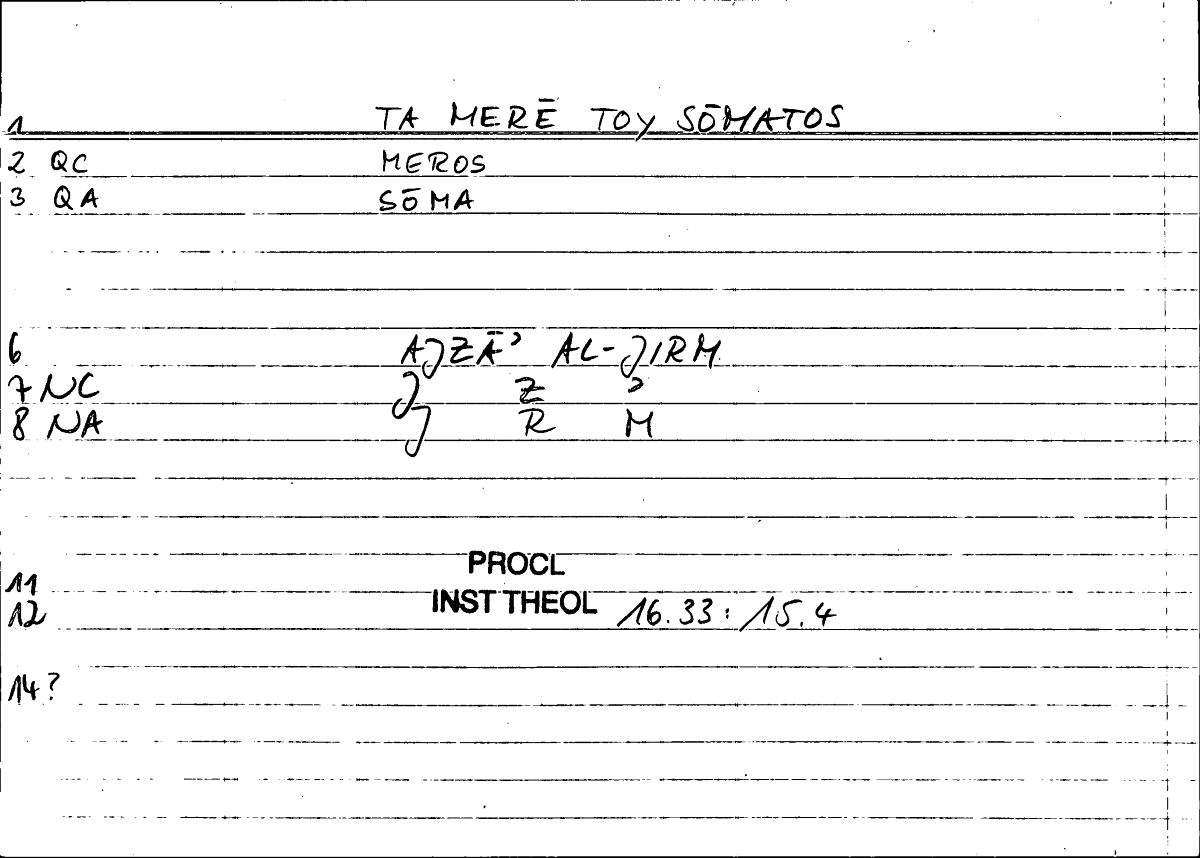 1 TA MERĒ TOY SŌMATOS
2 QC MEROS
3 QA SŌMA
6 AJZĀʾ AL-JIRM
7 NC J Z ʾ
8 NA J R M
11 PROCL
12 INST THEOL 16.33 : 15.4
14?